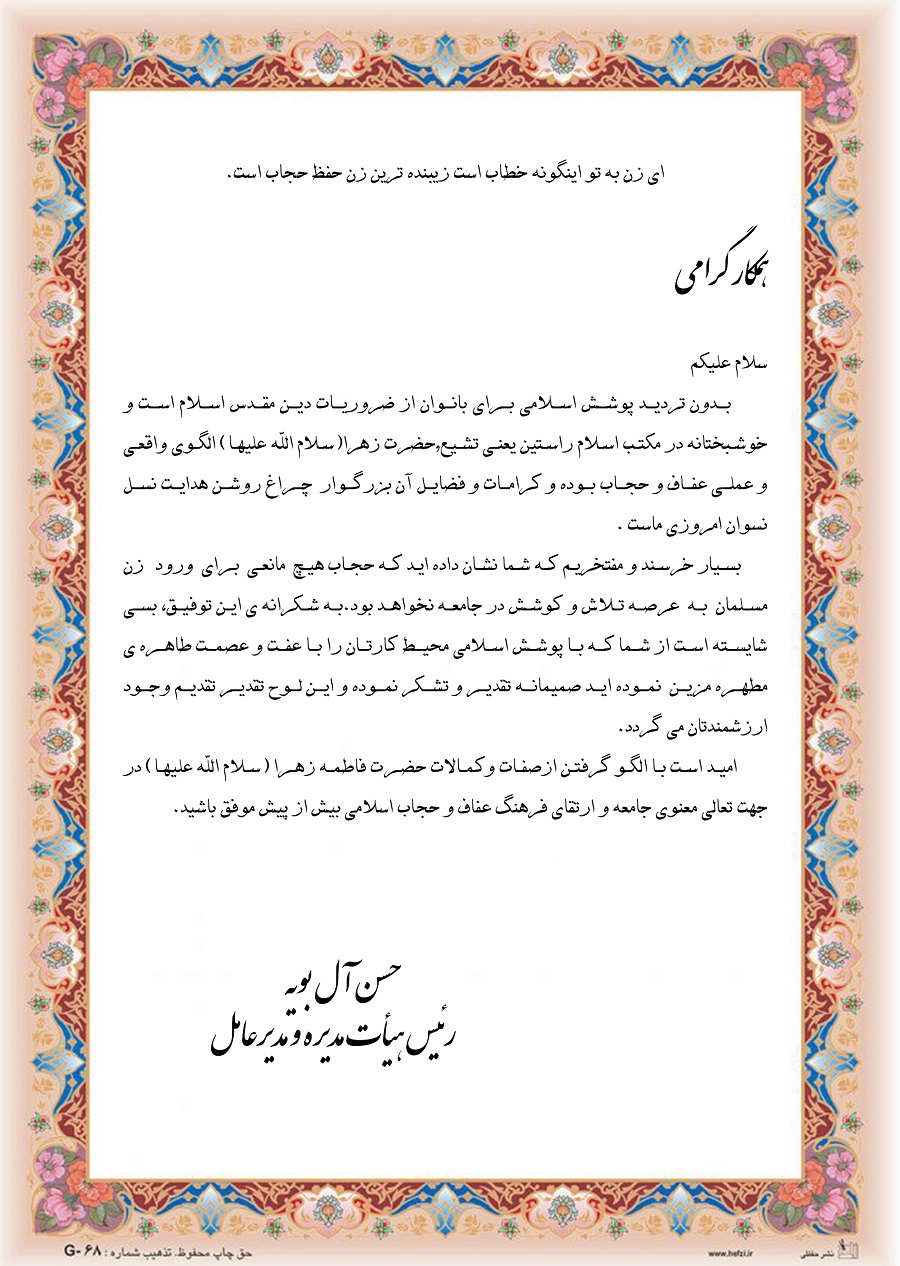 ای زن به تو اینگونه خطاب است زیبنده ترین زن حفظ حجاب است.
همکار گرامی
سلام علیکم
بدون تردید پوشش اسلامی برای بانوان از ضروریات دین مقدس اسلام است و
خوشبختانه در مکتب اسلام راستین یعنی تشیع,حضرت زهرا( سلام الله علیها ) الگوی واقعی
و عملی عفاف و حجاب بوده و کرامات و فضایل آن بزرگوار چراغ روشن هدایت نسل
نسوان امروزی ماست .
بسیار خرسند و مفتخریم که شما نشان داده اید که حجاب هیچ مانعی برای ورود زن
مسلمان به عرصه تلاش و کوشش در جامعه نخواهد بود.به شکرانه ی این توفیق، بسی
شایسته است از شما که با پوشش اسلامی محیط کارتان را با عفت و عصمت طاهره ی
مطهره مزین نموده اید صمیمانه تقدیر و تشکر نموده و این لوح تقدیر تقدیم وجود
ارزشمندتان می گردد.
امید است با الگو گرفتن ازصفات وکمالات حضرت فاطمه زهرا ( سلام الله علیها ) در
جهت تعالی معنوی جامعه و ارتقای فرهنگ عفاف و حجاب اسلامی بیش از پیش موفق باشید.
حسن آل بویه
رئیس هیأت مدیره و مدیرعامل
نشر حفظی www.hefzi.ir حق چاپ محفوظ. تذهیب شماره : G-۶۸